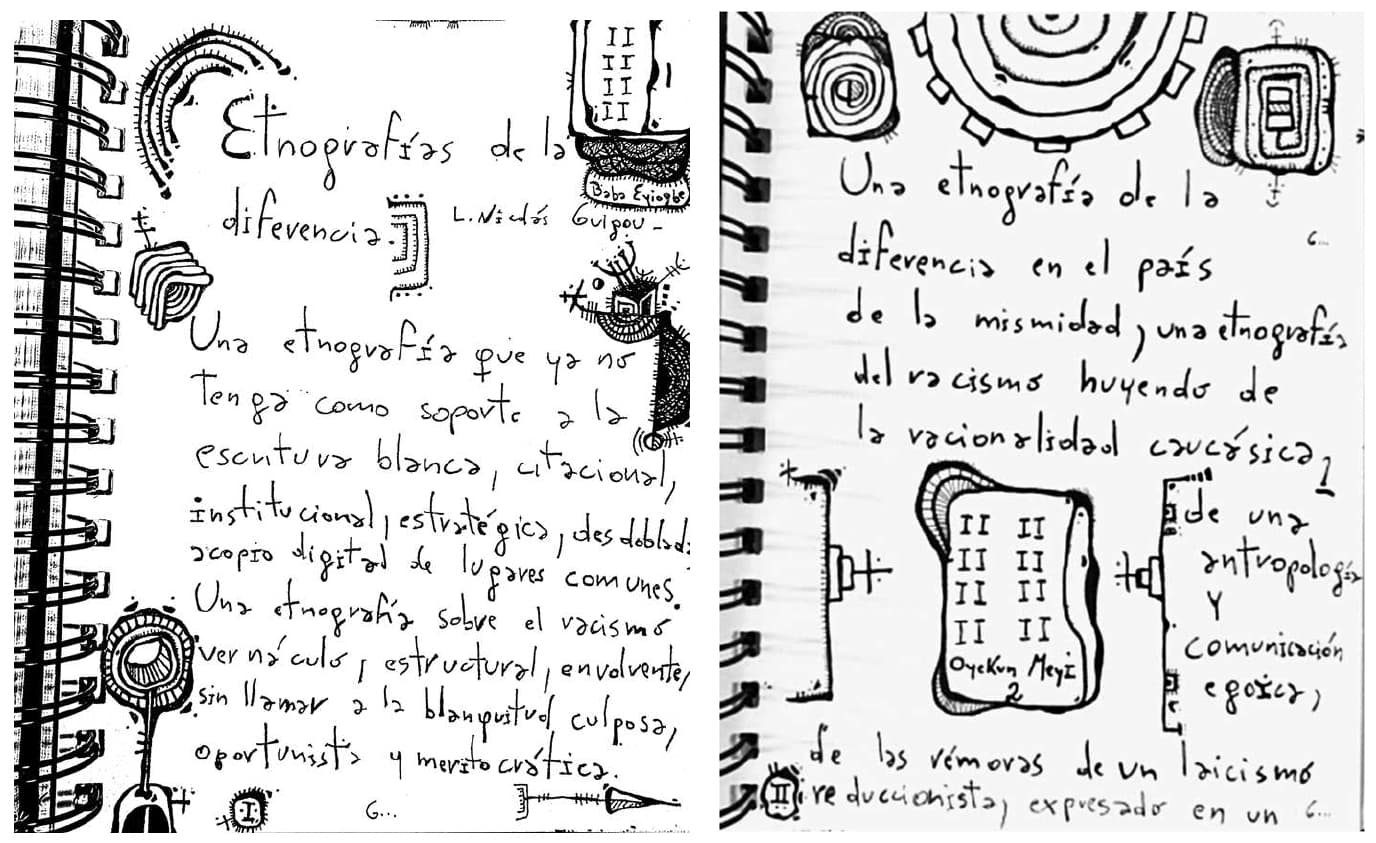 II
II
II
II
Etnografías de la
Baba Eyiogbe
diferencia.
L. Nicolás Guigou -
Una etnografía que ya no
tenga como soporte a la
escritura blanca, citacional,
institucional, estratégica, des doblad
acopio digital de lugares comunes.
Una etnografía sobre el racismo
vernáculo, estructural, envolvente,
sin llamar a la blanquitud culposa,
oportunista y meritocrática.
I
G...
Una etnografía de la
G...
diferencia en el país
de la mismidad, una etnografía
del racismo huyendo de
la racionalidad caucásica,
1
II II
II II
II II
II II
Oyekun Meyi
2
de una
antropología
Y
comunicación
egoica,
de las rémoras de un laicismo
II
reduccionista, expresado en un
G...